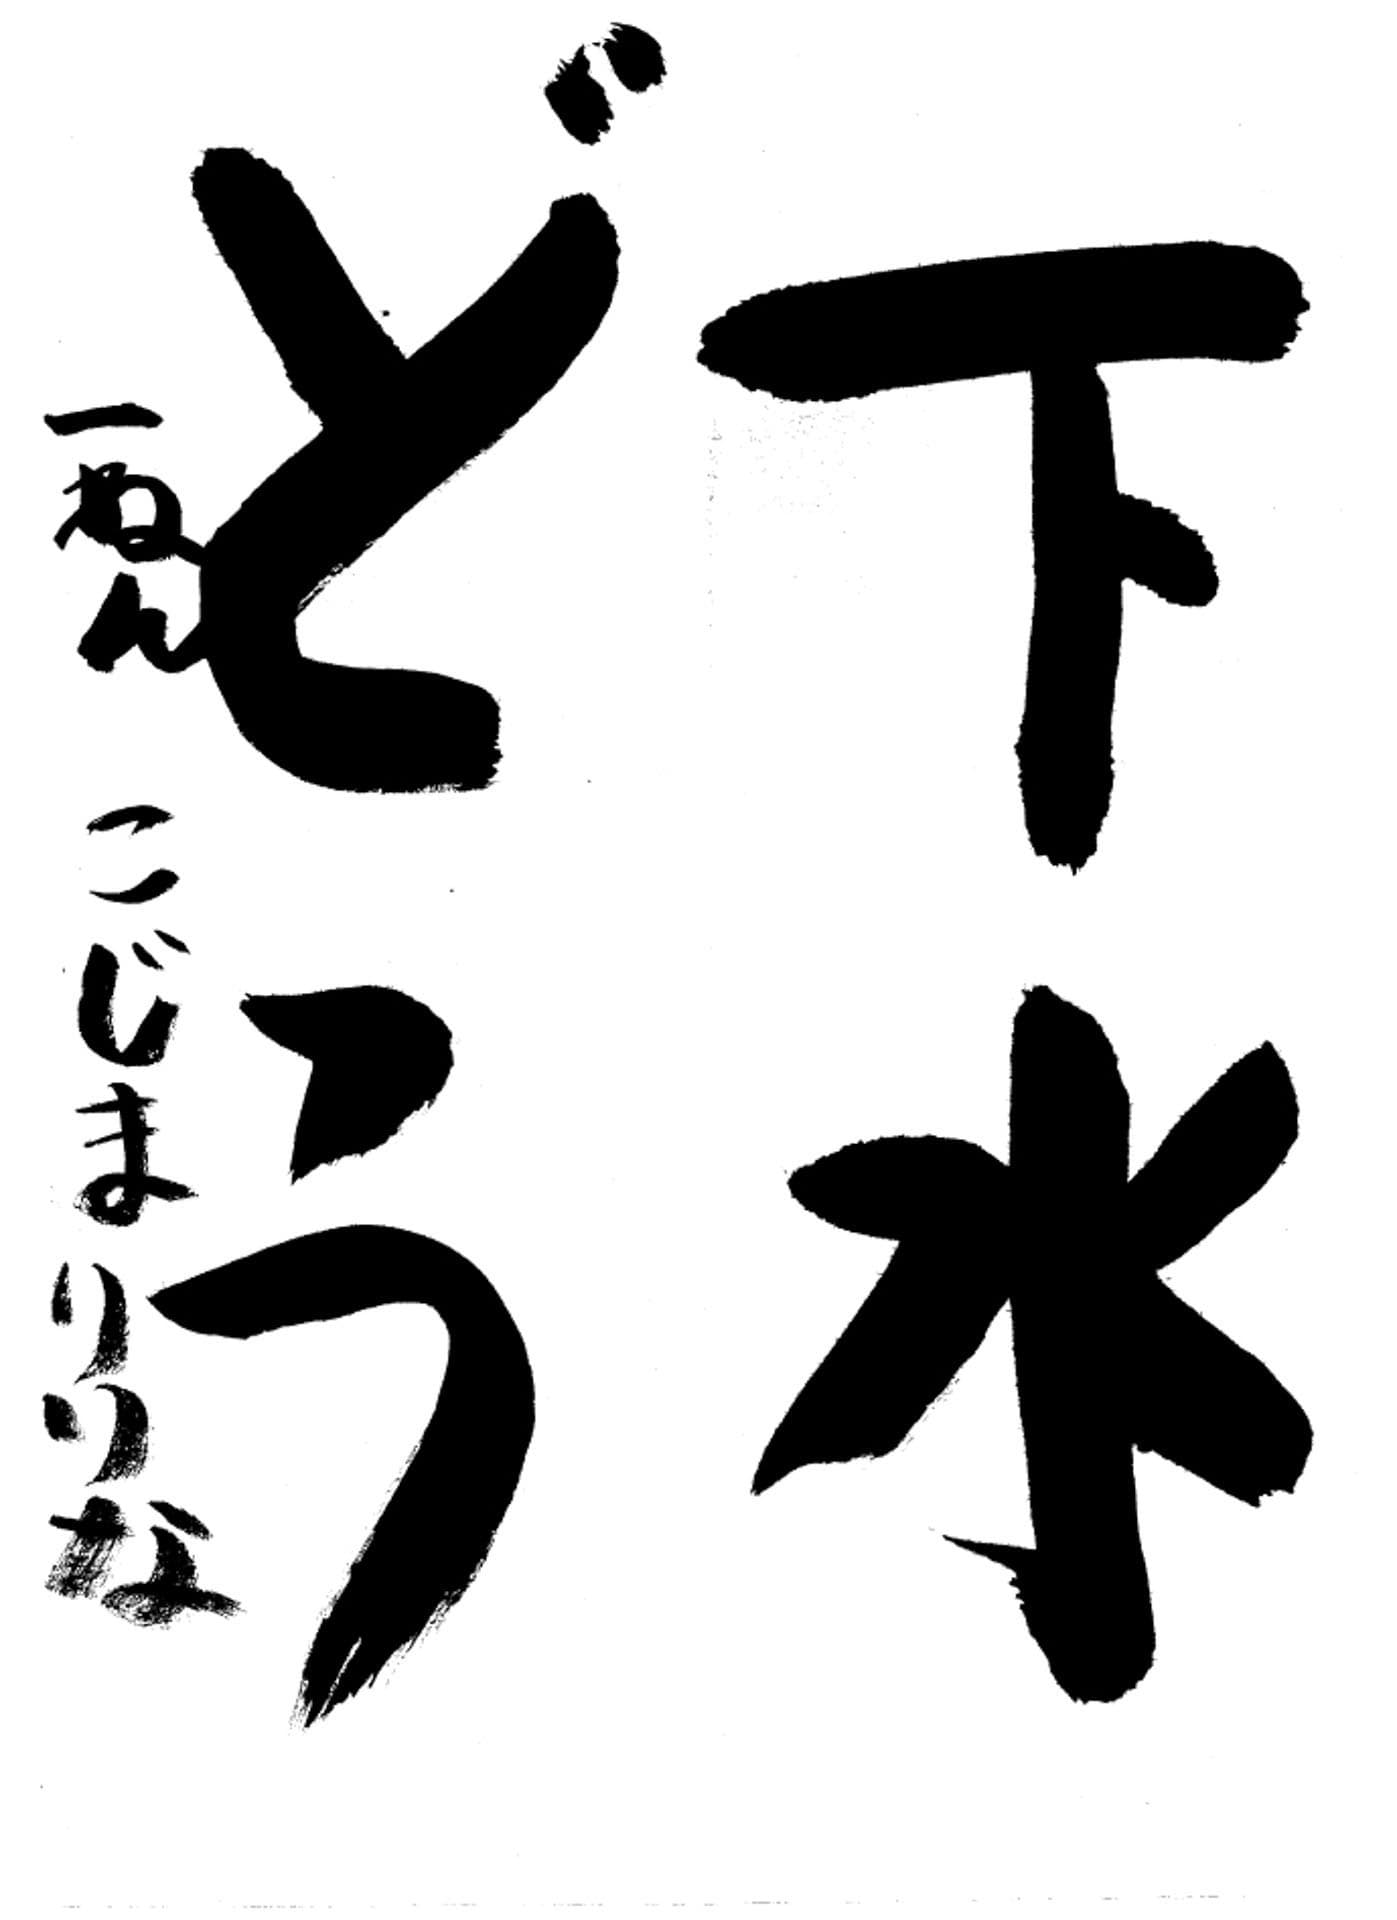 下水
どう
一ねん こじまりりな